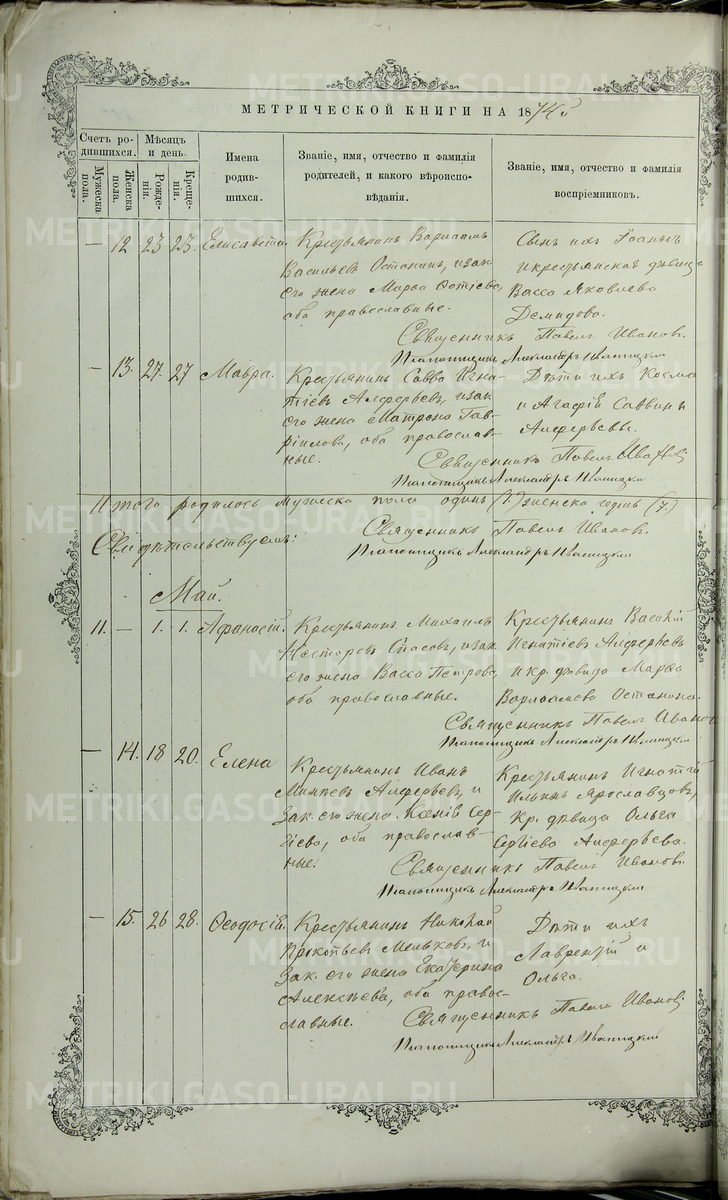 МЕТРИЧЕСКОЙ КНИГИ НА 1874й
Счетъ родившихся.
Мужеска пола.
Женска пола.
Мѣсяцъ и день
Рожденія.
Крещенія.
Имена родившихся.
Званіе, имя, отчество и фамилія родителей, и какого вѣроисповѣданія.
Званіе, имя, отчество и фамилія воспріемниковъ.
— 12 23 25. Елисавета.
Крестьянинъ Варлаамъ
Васильевъ Останинъ, и зак.
его жена Марѳа Фотіева,
оба православные.
Сынъ ихъ Іоаннъ
и крестьянская дѣвица
Васса Яковлева
Демидова.
Священникъ Павелъ Ивановъ.
Псаломщикъ Александръ
— 13. 27. 27 Мавра.
Крестьянинъ Савва Игна-
тіевъ Алферьевъ, и зак.
его жена Матрона Гав-
ріилова, оба православ-
ные.
Дѣти ихъ Косма
и Агафія Саввины
Алферьевы.
Священникъ Павелъ Ивановъ
Псаломщикъ Александръ
Итого родилось мужеска пола одинъ (1) женска семь (7)
Свидѣтельствуемъ:
Священникъ Павелъ Ивановъ.
Псаломщикъ Александръ
Май.
11. — 1. 1. Афанасій.
Крестьянинъ Михаилъ
Несторовъ Спасовъ, и зак.
его жена Васса Петрова,
оба православные.
Крестьянинъ Василій
Игнатіевъ Алферьевъ
и кр. дѣвица Марѳа
Варлаамова Останина.
Священникъ Павелъ Ивановъ
Псаломщикъ Александръ
— 14. 18 20. Елена
Крестьянинъ Иванъ
Алферьевъ, и
зак. его жена Ксенія Сер-
гіева, оба православ-
ные.
Крестьянинъ Игнатій
Ильинъ Ярославцовъ,
кр. дѣвица Ольга
Сергіева Алферьева.
Священникъ Павелъ Ивановъ.
Псаломщикъ Александръ
— 15. 26 28. Ѳеодосій.
Крестьянинъ Николай
Прокопьевъ Меньковъ, и
зак. его жена Екатерина
Алексѣева, оба право-
славные.
Дѣти ихъ
Лаврентій и
Ольга.
Священникъ Павелъ Ивановъ
Псаломщикъ Александръ
METRIKI.GASO-URAL.RU